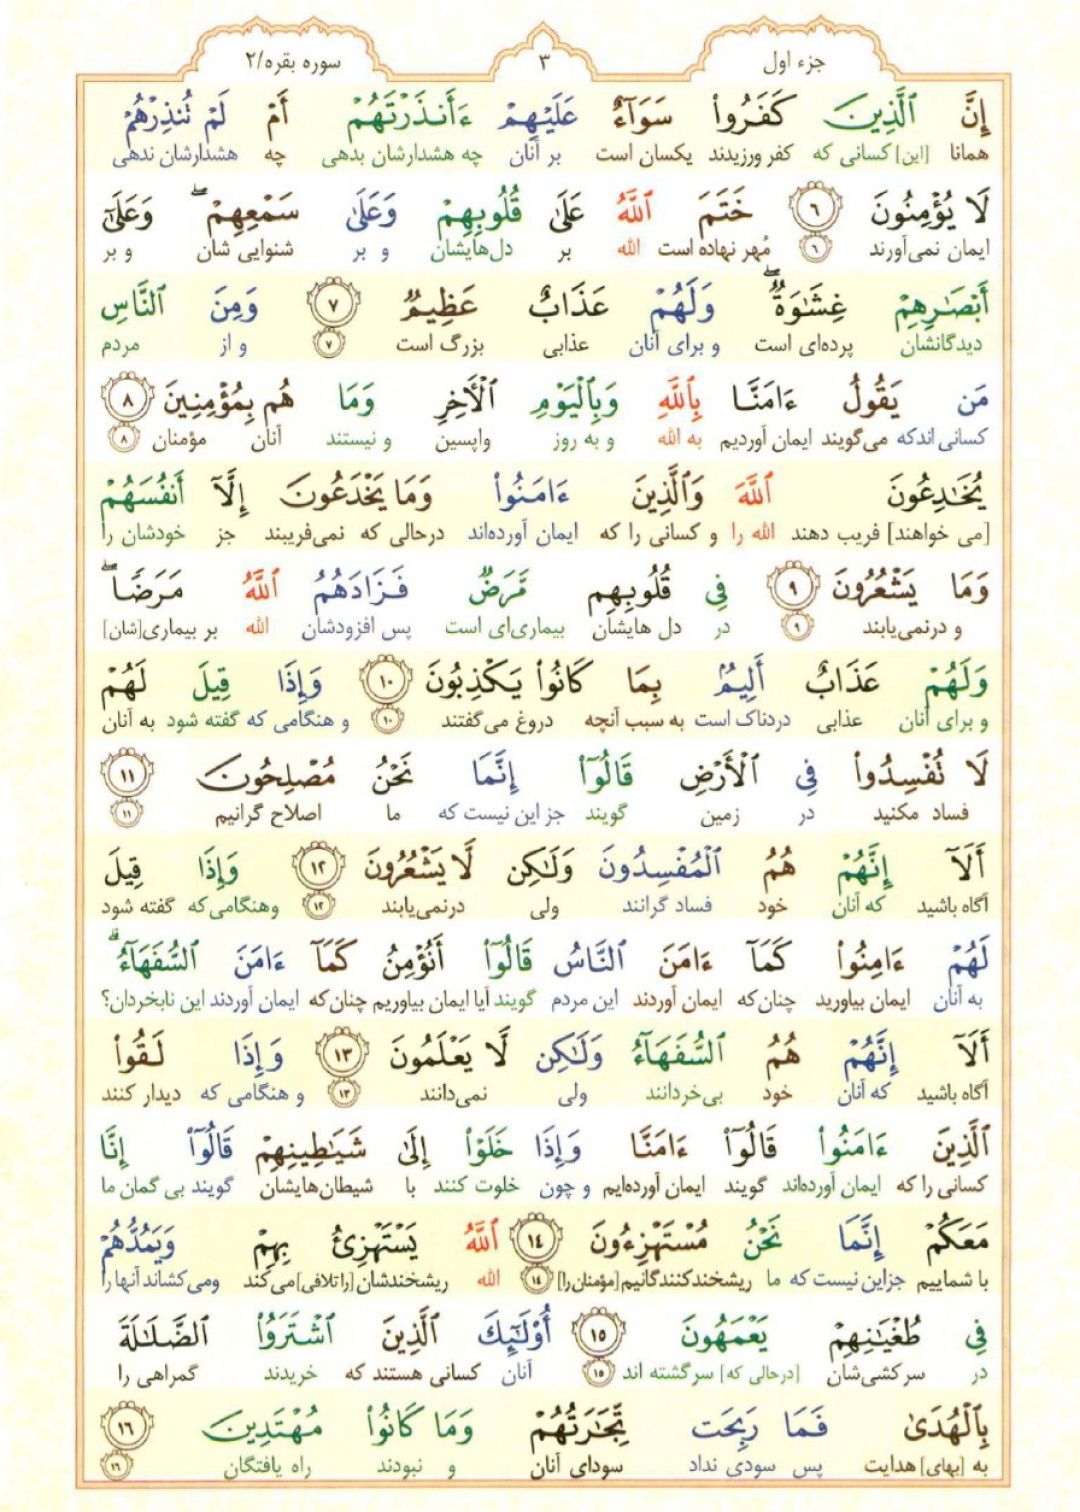 جزء اول
۳
سوره بقره/۲
إِنَّ ٱلَّذِينَ كَفَرُوا۟ سَوَآءٌ عَلَيْهِمْ ءَأَنذَرْتَهُمْ أَمْ لَمْ تُنذِرْهُمْ
همانا [این] کسانی که کفر ورزیدند یکسان است بر آنان چه هشدارشان بدهی چه هشدارشان ندهی
لَا يُؤْمِنُونَ ٦ خَتَمَ ٱللَّهُ عَلَىٰ قُلُوبِهِمْ وَعَلَىٰ سَمْعِهِمْ ۖ وَعَلَىٰٓ
ایمان نمی‌آورند ۶ مُهر نهاده است الله بر دل‌هایشان و بر شنوایی شان و بر
أَبْصَـٰرِهِمْ غِشَـٰوَةٌ ۖ وَلَهُمْ عَذَابٌ عَظِيمٌ ٧ وَمِنَ ٱلنَّاسِ
دیدگانشان پرده‌ای است و برای آنان عذابی بزرگ است ۷ و از مردم
مَن يَقُولُ ءَامَنَّا بِٱللَّهِ وَبِٱلْيَوْمِ ٱلْـَٔاخِرِ وَمَا هُم بِمُؤْمِنِينَ ٨
کسانی اندکه می‌گویند ایمان آوردیم به الله و به روز واپسین و نیستند آنان مؤمنان ۸
يُخَـٰدِعُونَ ٱللَّهَ وَٱلَّذِينَ ءَامَنُوا۟ وَمَا يَخْدَعُونَ إِلَّآ أَنفُسَهُمْ
[می خواهند] فریب دهند الله را و کسانی را که ایمان آورده‌اند درحالی که نمی‌فریبند جز خودشان را
وَمَا يَشْعُرُونَ ٩ فِى قُلُوبِهِم مَّرَضٌ فَزَادَهُمُ ٱللَّهُ مَرَضًا ۖ
و درنمی‌یابند ۹ در دل هایشان بیماری‌ای است پس افزودشان الله بر بیماری[شان]
وَلَهُمْ عَذَابٌ أَلِيمٌۢ بِمَا كَانُوا۟ يَكْذِبُونَ ١٠ وَإِذَا قِيلَ لَهُمْ
و برای آنان عذابی دردناک است به سبب آنچه دروغ می‌گفتند ۱۰ و هنگامی که گفته شود به آنان
لَا تُفْسِدُوا۟ فِى ٱلْأَرْضِ قَالُوٓا۟ إِنَّمَا نَحْنُ مُصْلِحُونَ ١١
فساد مکنید در زمین گویند جز این نیست که ما اصلاح گرانیم ۱۱
أَلَآ إِنَّهُمْ هُمُ ٱلْمُفْسِدُونَ وَلَـٰكِن لَّا يَشْعُرُونَ ١٢ وَإِذَا قِيلَ
آگاه باشید که آنان خود فساد گرانند ولی درنمی‌یابند ۱۲ وهنگامی‌که گفته شود
لَهُمْ ءَامِنُوا۟ كَمَآ ءَامَنَ ٱلنَّاسُ قَالُوٓا۟ أَنُؤْمِنُ كَمَآ ءَامَنَ ٱلسُّفَهَآءُ ۗ
به آنان ایمان بیاورید چنان‌که ایمان آوردند این مردم گویند آیا ایمان بیاوریم چنان‌که ایمان آوردند این نابخردان؟
أَلَآ إِنَّهُمْ هُمُ ٱلسُّفَهَآءُ وَلَـٰكِن لَّا يَعْلَمُونَ ١٣ وَإِذَا لَقُوا۟
آگاه باشید که آنان خود بی‌خردانند ولی نمی‌دانند ۱۳ و هنگامی که دیدار کنند
ٱلَّذِينَ ءَامَنُوا۟ قَالُوٓا۟ ءَامَنَّا وَإِذَا خَلَوْا۟ إِلَىٰ شَيَـٰطِينِهِمْ قَالُوٓا۟ إِنَّا
کسانی را که ایمان آورده‌اند گویند ایمان آورده‌ایم و چون خلوت کنند با شیطان‌هایشان گویند بی گمان ما
مَعَكُمْ إِنَّمَا نَحْنُ مُسْتَهْزِءُونَ ١٤ ٱللَّهُ يَسْتَهْزِئُ بِهِمْ وَيَمُدُّهُمْ
با شماییم جزاین نیست که ما ریشخندکنندگانیم [مؤمنان را] ۱۴ الله ریشخندشان [را تلافی] می‌کند ومی‌کشاند آنها را
فِى طُغْيَـٰنِهِمْ يَعْمَهُونَ ١٥ أُو۟لَـٰٓئِكَ ٱلَّذِينَ ٱشْتَرَوُا۟ ٱلضَّلَـٰلَةَ
در سرکشی‌شان [درحالی که] سرگشته اند ۱۵ آنان کسانی هستند که خریدند گمراهی را
بِٱلْهُدَىٰ فَمَا رَبِحَت تِّجَـٰرَتُهُمْ وَمَا كَانُوا۟ مُهْتَدِينَ ١٦
به [بهای] هدایت پس سودی نداد سودای آنان و نبودند راه یافتگان ۱۶